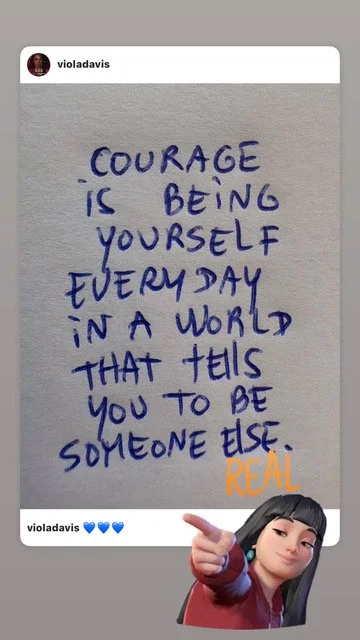 violadavis
COURAGE
iS BEiNG
YOURSELF
EVERYDAY
iN A WORLD
THAT tElls
YOU TO BE
SOMEONE ElSE.
REAL
violadavis 💙💙💙